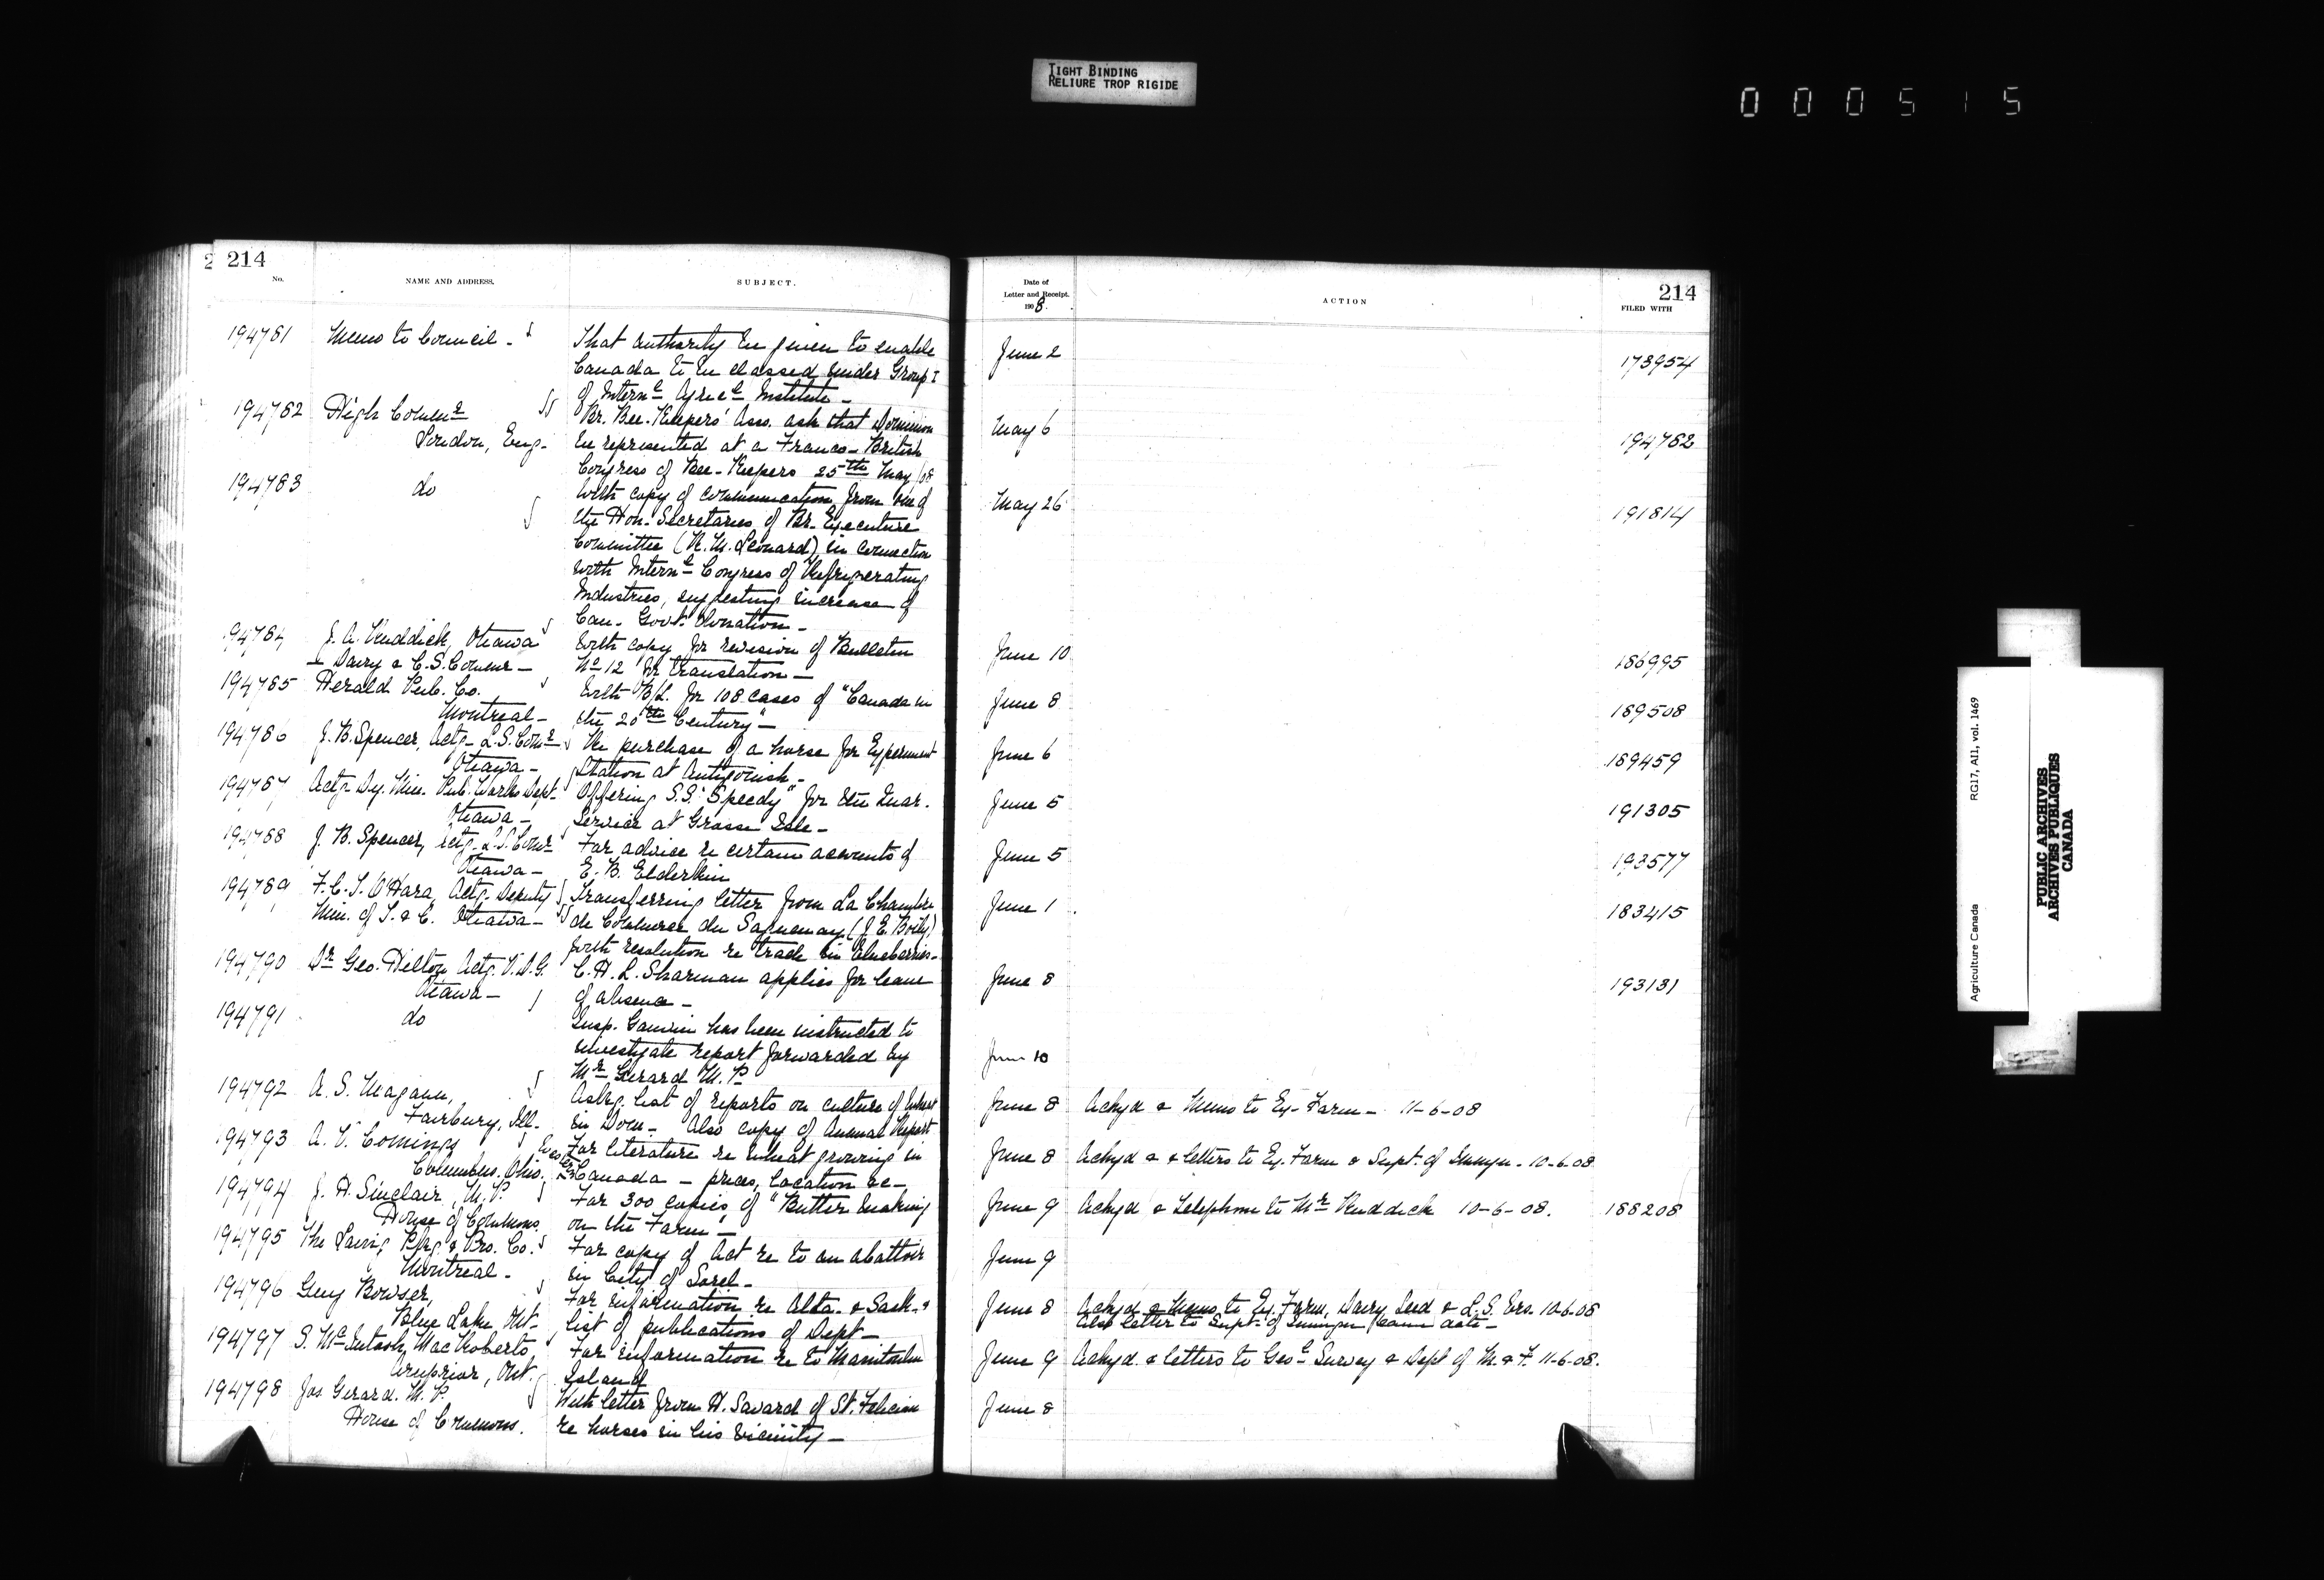 TIGHT BINDING
RELIURE TROP RIGIDE
000515
214
No.
NAME AND ADDRESS.
SUBJECT.
194781 Memo to Council -
That authority be given to enable
Canada to be classed under Group I
of Intern<sup>l</sup> Agric<sup>l</sup> Institute -
194782 High Comm<sup>r</sup>
London, Eng -
Br. Bee-Keepers' Asso. ask that Dominion
be represented at a Franco-British
Congress of Bee-Keepers 25<sup>th</sup> May /08
194783 do
With copy of communication from one of
the Hon. Secretaries of Br. Executive
Committee (R. M. Leonard) in connection
with Intern<sup>l</sup> Congress of Refrigerating
Industries, suggesting increase of
Can. Govt. donation -
194784 J. A. Ruddick, Ottawa
Dairy & C.S. Commr -
With copy for revision of Bulletin
No 12 for translation -
194785 Herald Pub. Co.
Montreal -
With B/L. for 108 cases of "Canada in
the 20<sup>th</sup> Century" -
194786 J. B. Spencer, Actg. L.S. Com<sup>r</sup>
Ottawa -
Re purchase of a horse for Experiment
Station at Antigonish -
194787 Actg. Dy. Min. Pub. Works Dept.
Ottawa -
Offering S.S. "Speedy" for the Quar.
Service at Grosse Isle -
194788 J. B. Spencer, Actg. L.S. Com<sup>r</sup>
Ottawa -
For advice re certain accounts of
E. B. Elderkin
194789 F. C. T. O'Hara, Actg. Deputy
Min. of T. & C. Ottawa -
Transferring letter from La Chambre
de Commerce du Saguenay (J. E. Boily)
with resolution re trade in blueberries -
194790 Dr Geo. Hilton Actg. V.D.G.
Ottawa -
C. H. L. Sharman applies for leave
of absence -
194791 do
Insp. Gauvin has been instructed to
investigate report forwarded by
Mr Girard M. P.
194792 A. S. Magann,
Fairbury, Ill.
Askg. list of reports on culture of wheat
in Dom - Also copy of Annual Report
194793 A. V. Comings
Columbus, Ohio.
For literature re wheat growing in
Western Canada - prices, location &c -
194794 J. H. Sinclair, M. P.
House of Commons
For 300 copies of "Butter Making
on the Farm" -
194795 The Laing Pkg. & Pro. Co.
Montreal -
For copy of Act re to an abattoir
in City of Sorel -
194796 Guy Bowser,
Blue Lake, Ont -
For information re Alta. & Sask. &
list of publications of Dept -
194797 S. McIntosh MacRoberts,
Arnprior, Ont.
For information re to Manitoulin
Island
194798 Jos Gerard. M. P.
House of Commons.
With letter from H. Savard of St. Felicien
re horses in his vicinity -
Date of
Letter and Receipt.
1908
ACTION
214
FILED WITH
June 2 173954
May 6 194782
May 26 191814
June 10 186995
June 8 189508
June 6 189459
June 5 191305
June 5 193577
June 1 183415
June 8 193131
June 10
June 8 Ackgd & Memo to Ex. Farm - 11-6-08
June 8 Ackgd & letters to Ex. Farm & Supt. of Immgn. 10-6-08
June 9 Ackgd & Telephone to Mr Ruddick 10-6-08. 188208
June 9
June 8 Ackgd & Memo to Ex. Farm, Dairy Seed & L.S. Brs. 10-6-08
Also letter to Supt. of Immgn /same date -
June 9 Ackgd. & letters to Geo<sup>l</sup> Survey & Dept of M. & F. 11-6-08.
June 8
Agriculture Canada RG17, AI1, vol. 1469
PUBLIC ARCHIVES
ARCHIVES PUBLIQUES
CANADA